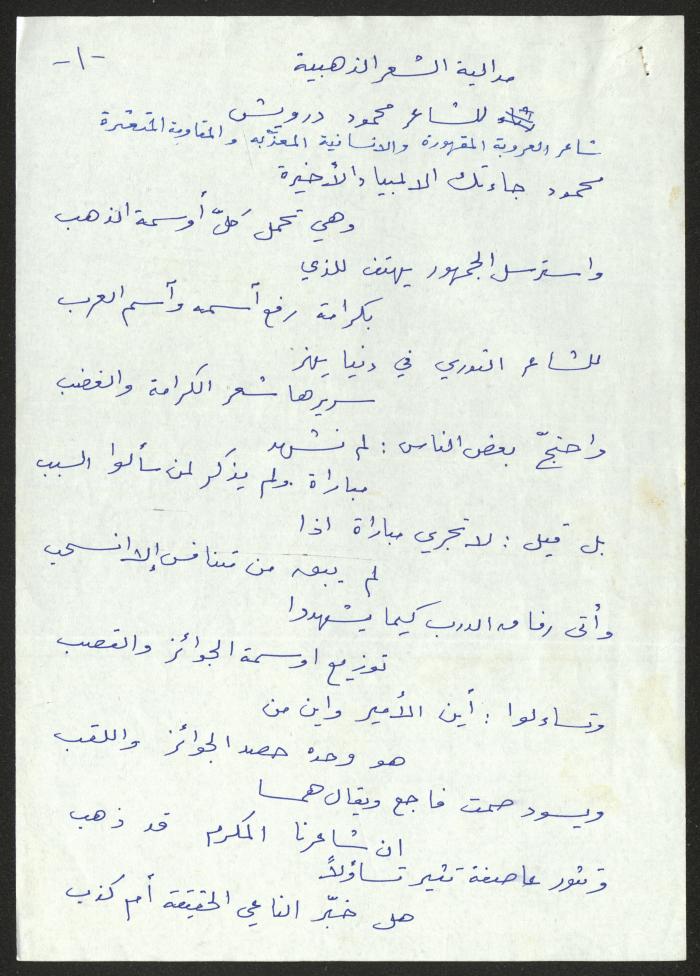 -١-
مدالية الشعر الذهبية
للشاعر محمود درويش
شاعر العروبة المقهورة والانسانية المعذّبه والمقاومة المتعثرة
محمود جاءتك الالمبياد الأخيرة
وهي تحمل كلّ أوسمة الذهب
واسترسل الجمهور يهتف للذي
بكرامة رفع أسمه وآسم العرب
للشاعر الثوري في دنيا يهز
سريرها شعر الكرامة والغضب
واحتجّ بعض الناس : لم نشهد
مباراة ولم يذكر لمن سألوا السبب
بل قيل : لا تجري مباراة اذا
لم يبق من متنافس إلا انسحب
وأتى رفاق الدرب كيما يشهدوا
توزيع اوسمة الجوائز والقصب
وتساءلوا : أين الأمير واين من
هو وحده حصد الجوائز واللقب
ويسود صمت فاجع ويقال همسا
ان شاعرنا المكرم قد ذهب
وتثور عاصفة تثير تساؤلاً
هل خبّر الناعي الحقيقة أم كذب